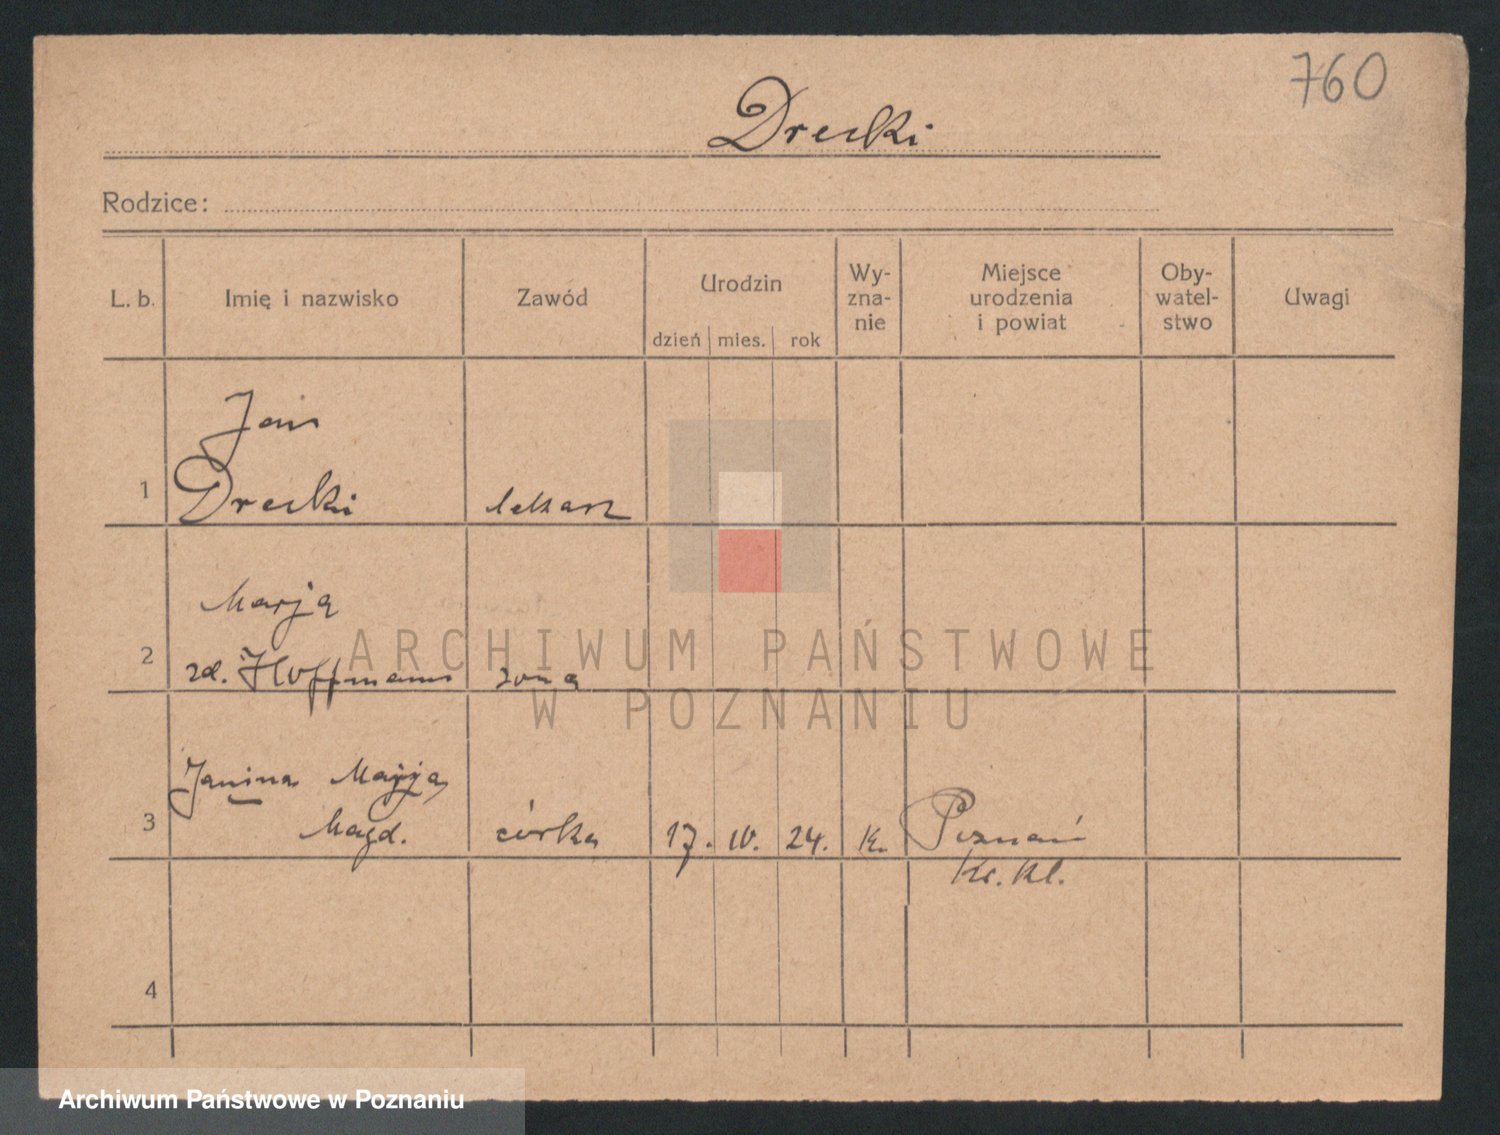 760
Drecki
Rodzice:
L. b. Imię i nazwisko Zawód Urodzin Wy-zna-nie Miejsce urodzenia i powiat Oby-watel-stwo Uwagi
dzień mies. rok
Jan
1 Drecki lekarz
Marja
2 zd. Hoffmann żona
ARCHIWUM PAŃSTWOWE
W POZNANIU
Janina Marja
3 Magd. córka 17. IV. 24. K. Poznań
Kr. Kl.
4
Archiwum Państwowe w Poznaniu